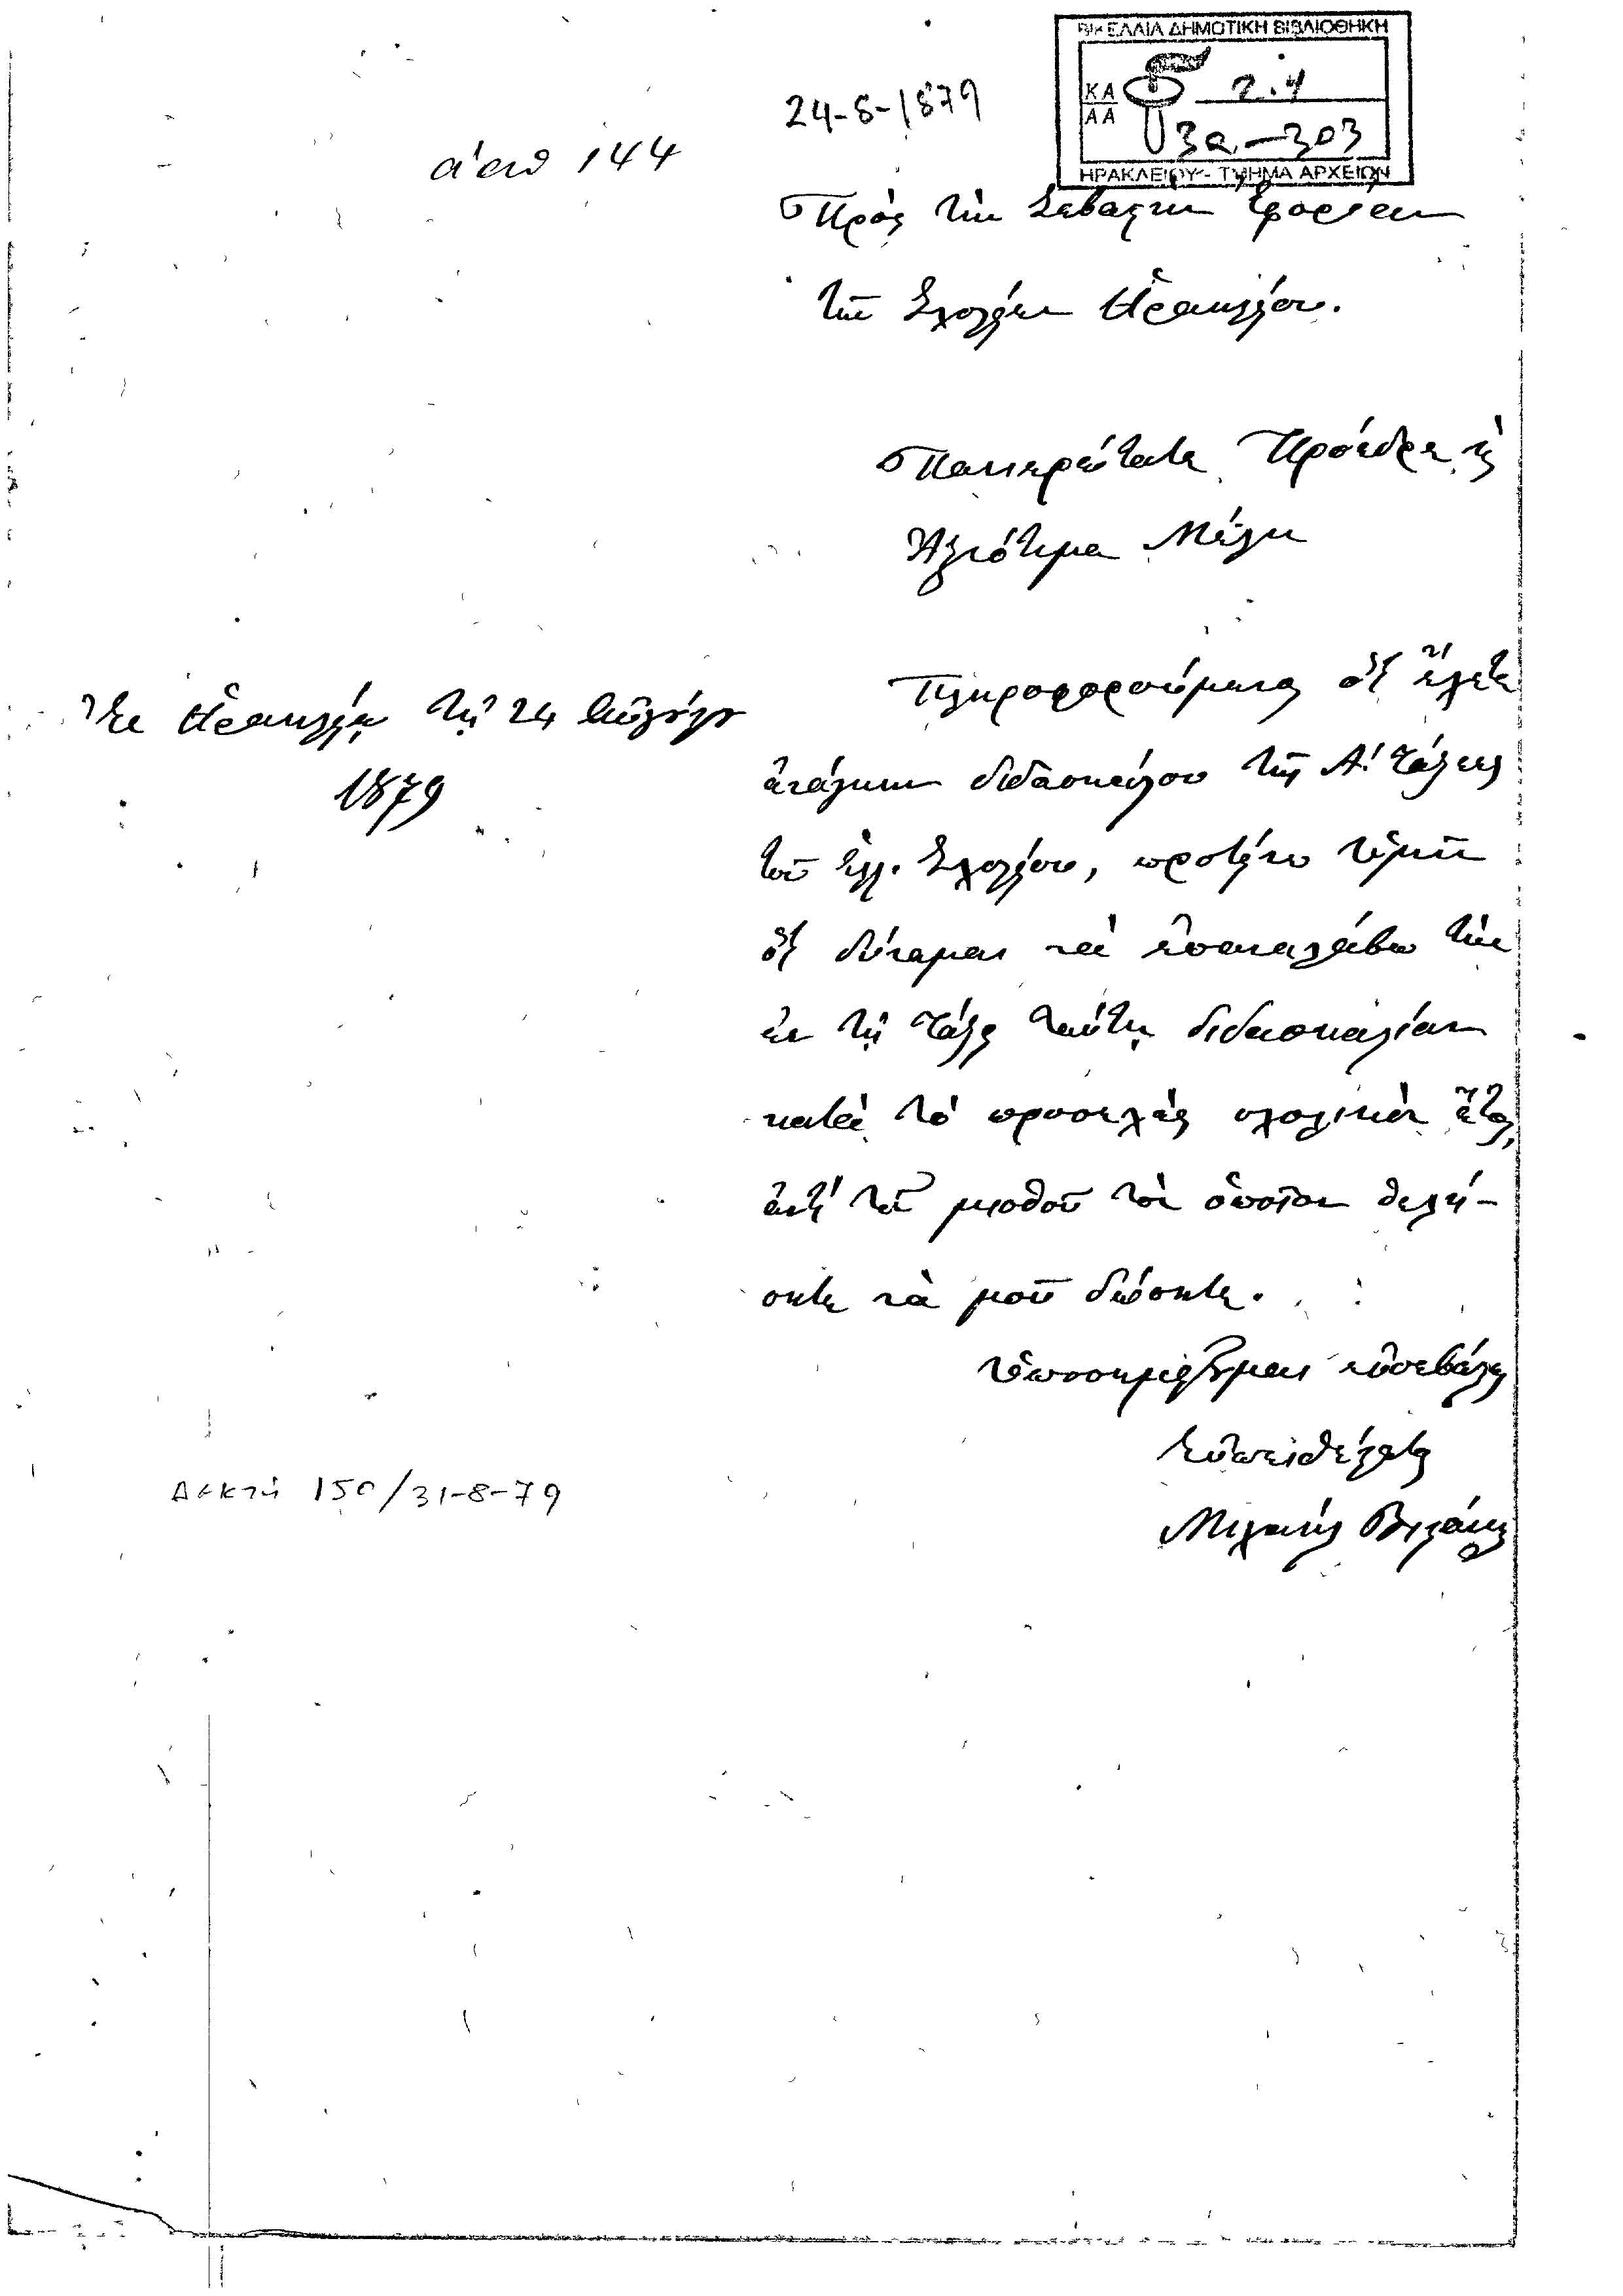 ΒΙΚΕΛΑΙΑ ΔΗΜΟΤΙΚΗ ΒΙΒΛΙΟΘΗΚΗ
ΚΑ 2.4
ΑΑ 3α-303
ΗΡΑΚΛΕΙΟΥ - ΤΜΗΜΑ ΑΡΧΕΙΩΝ
24-8-1879
ἀριθ 144
Πρὸς τὴν Σεβαστὴν Ἐφορείαν
τῶν Σχολείων Ἡρακλείου.
Πανιερώτατε Πρόεδρε κ
Ἀξιότιμα Μέλη
Ἐν Ἡρακλείῳ τῇ 24 Αὐγούστου
1879
Πληροφορούμενος ὅτι ἔχετε
ἀνάγκην διδασκάλου τῆς Α! τάξεως
τοῦ Ἑλλ. Σχολείου, προτείνω ὑμῖν
ὅτι δύναμαι νὰ ἐπαναλάβω τὴν
ἐν τῇ τάξει ταύτῃ διδασκαλίαν
κατὰ τὸ προσεχὲς σχολικὸν ἔτος,
ἀντὶ τοῦ μισθοῦ τὸν ὁποῖον θελή-
σητε νὰ μοῦ δώσητε.
Ὑποσημειοῦμαι εὐσεβάστως
Εὐπειθέστατος
Δεκτή 150/31-8-79